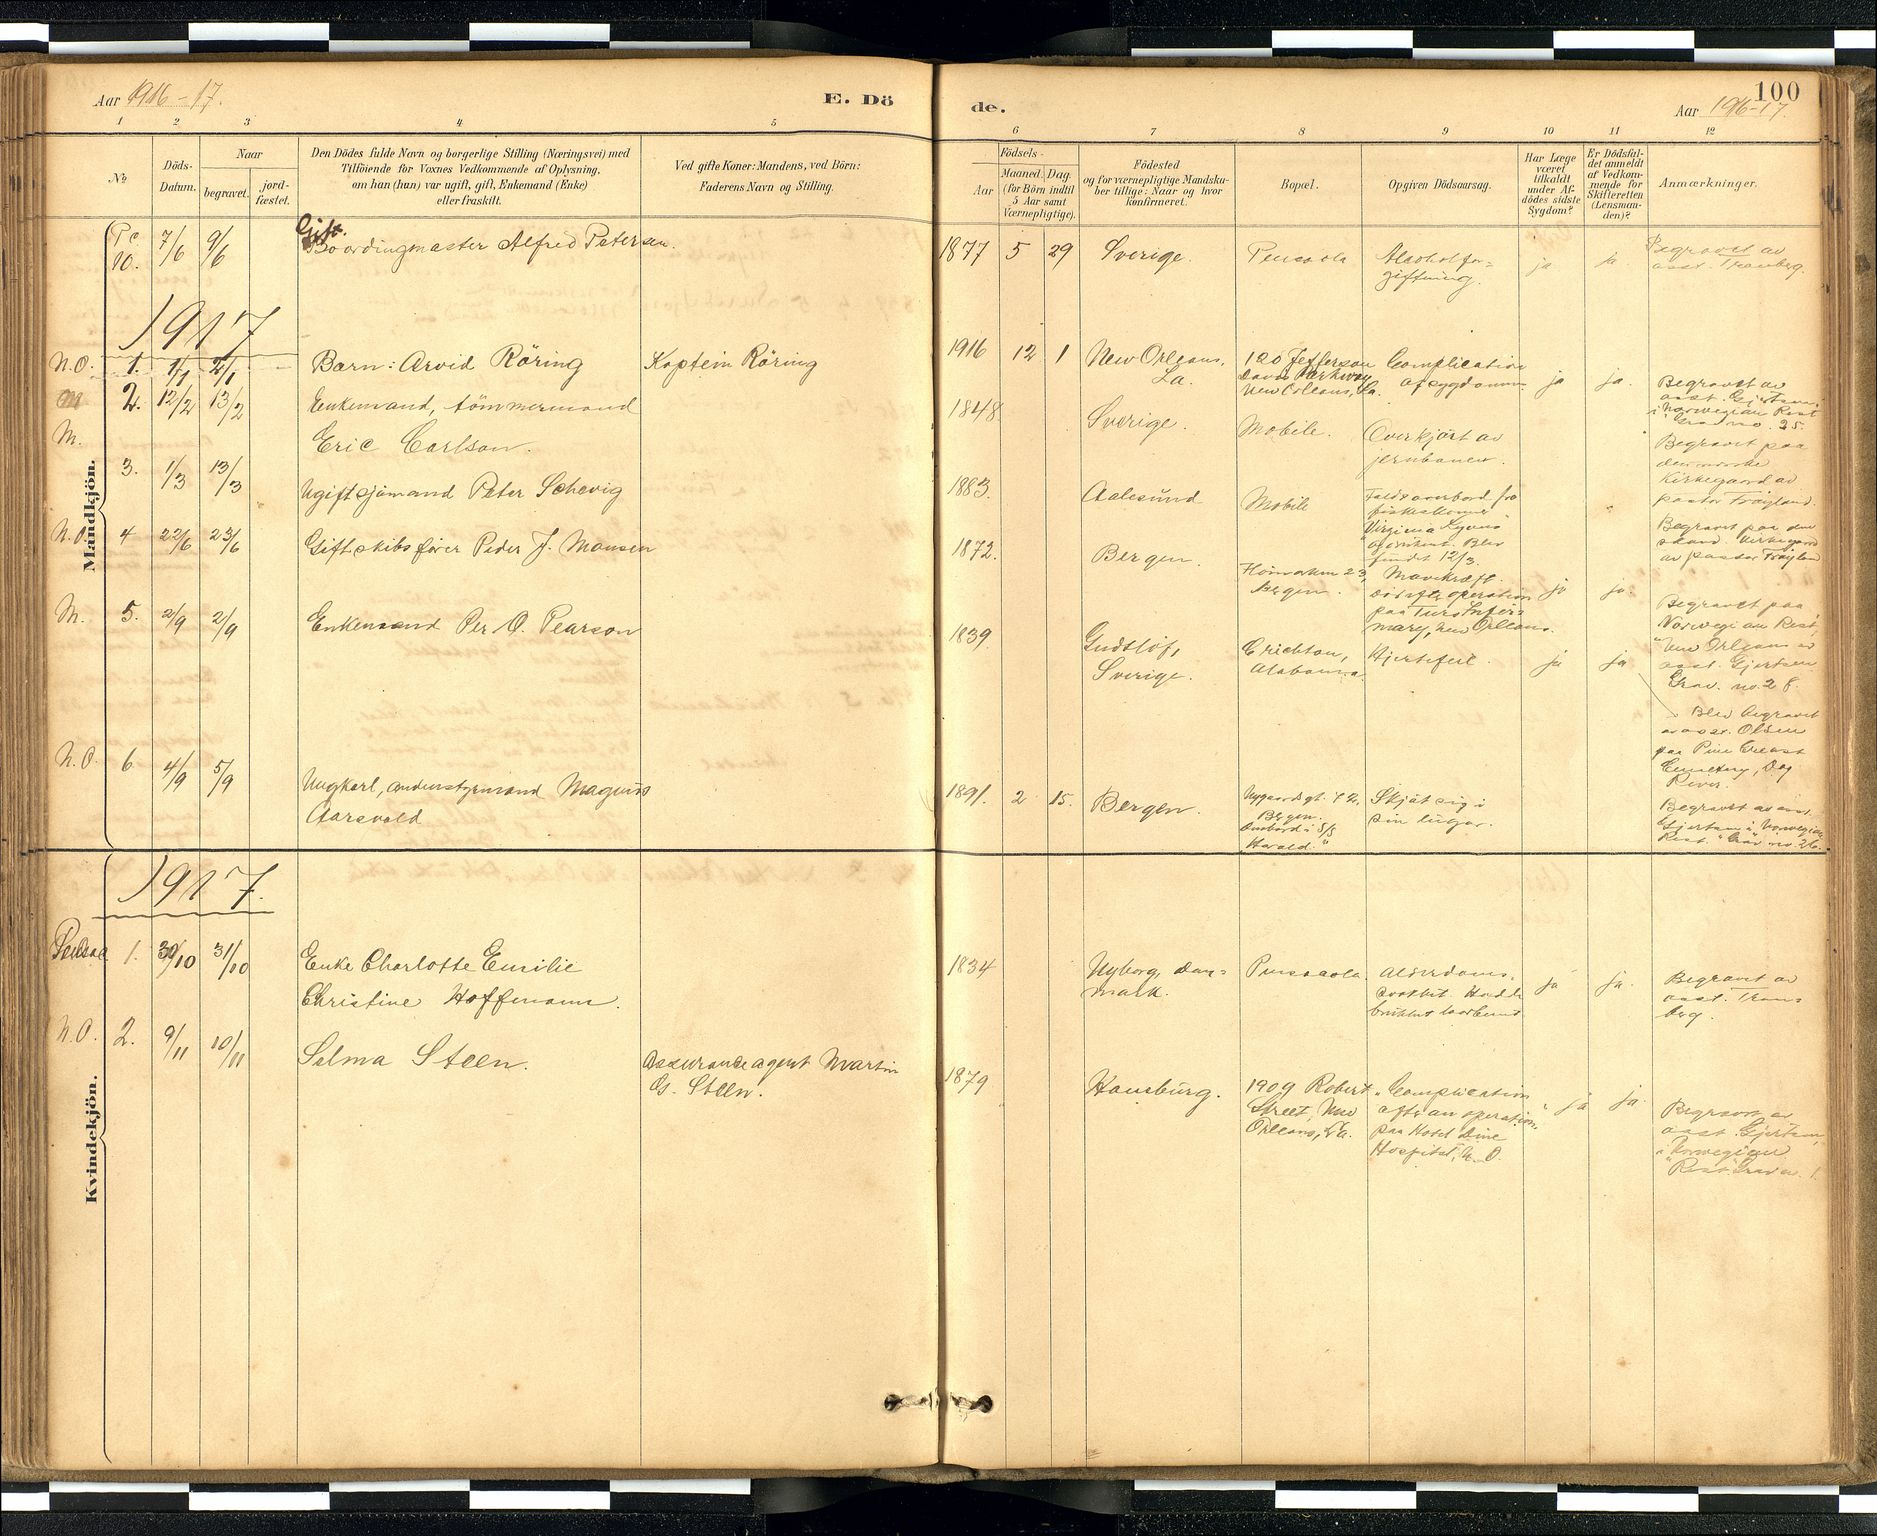 Aar 1916-17.
E. Dö
de.
100
Aar 1916-17.
1 2 3 4 5 6 7 8 9 10 11 12
No
Döds-
Datum.
Naar
begravet.
jord-
fæstet.
Den Dödes fulde Navn og borgerlige Stilling (Næringsvei) med
Tilföiende for Voxnes Vedkommende af Oplysning,
om han (hun) var ugift, gift, Enkemand (Enke)
eller fraskilt.
Ved gifte Koner: Mandens, ved Börn:
Faderens Navn og Stilling.
Födsels-
Aar
Maaned. Dag.
(for Börn indtil
5 Aar samt
Værnepligtige).
Födested
og for værnepligtige Mandska-
ber tillige: Naar og hvor
konfirmeret.
Bopæl.
Opgiven Dödsaarsag.
Har Læge
været
tilkaldt
under Af-
dödes sidste
Sygdom?
Er Dödsfal-
det anmeldt
af Vedkom-
mende for
Skifteretten
(Lensman-
den)?
Anmærkninger.
Mandkjön.
10. 7/6 9/6
Gift.
Boardingmaster Alfred Petersen.
1877 5 29
Sverige.
Alcoholfor-
giftning.
ja
ja.
Begravet av
asst. Tranberg.
1917
N.O. 1. 1/1 2/1
Barn: Arvid Röring
Kaptein Röring
1916 12 1
New Orleans,
La.
120 Jefferson
Davis Parkway
New Orleans, La.
Complication
af sygdomm.
ja
ja.
Begravet av
asst. Gjertsen
i "Norwegian Rest"
Grav no. 25.
M 2. 12/2 13/2
Enkemand, tömmermand
Eric Carlson.
1848.
Sverige.
Mobile.
Overkjört av
jernbanen.
Begravet paa
den norske
Kirkegaard av
pastor Fröyland.
M. 3. 1/3 13/3
Ugift sjömand Peter Schevig
1883.
Aalesund
Mobile
Faldt overbord fra
fiskeskonner
"Virginia
fundet 12/3.
Begravet paa den
skand. Kirkegaard
av pastor Fröyland
N.O. 4 22/6 23/6
Gift skibsfører Peder J. Monsen
1872.
Bergen.
23,
Bergen.
Mavekræft.
operation
paa Turo Infir-
mary, New Orleans.
ja
ja.
Begravet paa
"Norwegian Rest",
New Orleans av
asst. Gjertsen
Grav. no. 28.
M. 5. 2/9 2/9
Enkemand Per O. Pearson
1839.
Gudslöf,
Sverige.
Crichton,
Alabama.
Hjertefeil.
ja
ja
Blev begravet
av asst. Olsen
paa Pine Creast
Cemetery, Dog
River.
N.O. 6. 4/9 5/9
Ungkarl, andenstyrmand Magnus
Aarsvold
1891. 2 15.
Bergen.
Nygaardsgt. 72,
Bergen.
Ombord i S/S
"Harald."
Skjöt sig i
sin lugar.
Begravet av asst.
Gjertsen i "Norwegian
Rest." Grav no. 26.
Kvindekjön.
1917.
1. 30/10 31/10
Enke Charlotte Emilie
Christine Hoffmann.
1834
Nyborg, Dan-
mark.
Pensacola.
Alderdoms-
svakhet. Hadde
brukket laarbenet
ja
ja.
Begravet av
asst. Tran-
berg.
N.O. 2. 9/11 10/11
Selma Steen.
Assuranceagent Martin
G. Steen.
1879
Hamburg.
1909 Robert
Street, New
Orleans, La.
"Complication
after an operation."
paa Hotel Dieu
Hospital, N.O.
ja
ja
Begravet av
asst. Gjertsen,
i "Norwegian
Rest." Grav n. 1.